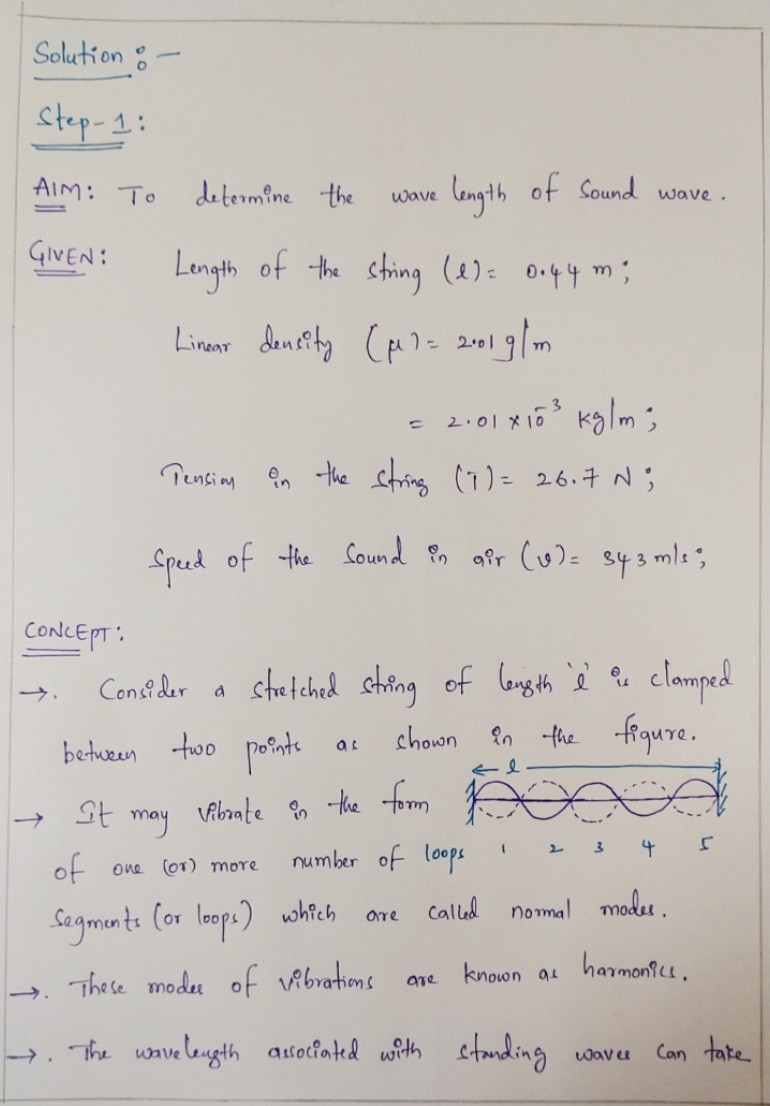 Solution :-
Step-1:
AIM: To determine the wave length of sound wave.
GIVEN: Length of the string (l) = 0.44 m;
Linear density (μ) = 2.01 g/m
= 2.01 × 10⁻³ kg/m;
Tension in the string (T) = 26.7 N;
Speed of the sound in air (v) = 343 m/s;
CONCEPT:
→. Consider a stretched string of length 'l' is clamped
between two points as shown in the figure.
← l →
→ It may vibrate in the form
of one (or) more number of loops 1 2 3 4 5
segments (or loops) which are called normal modes.
→. These modes of vibrations are known as harmonics.
→. The wavelength associated with standing waves can take